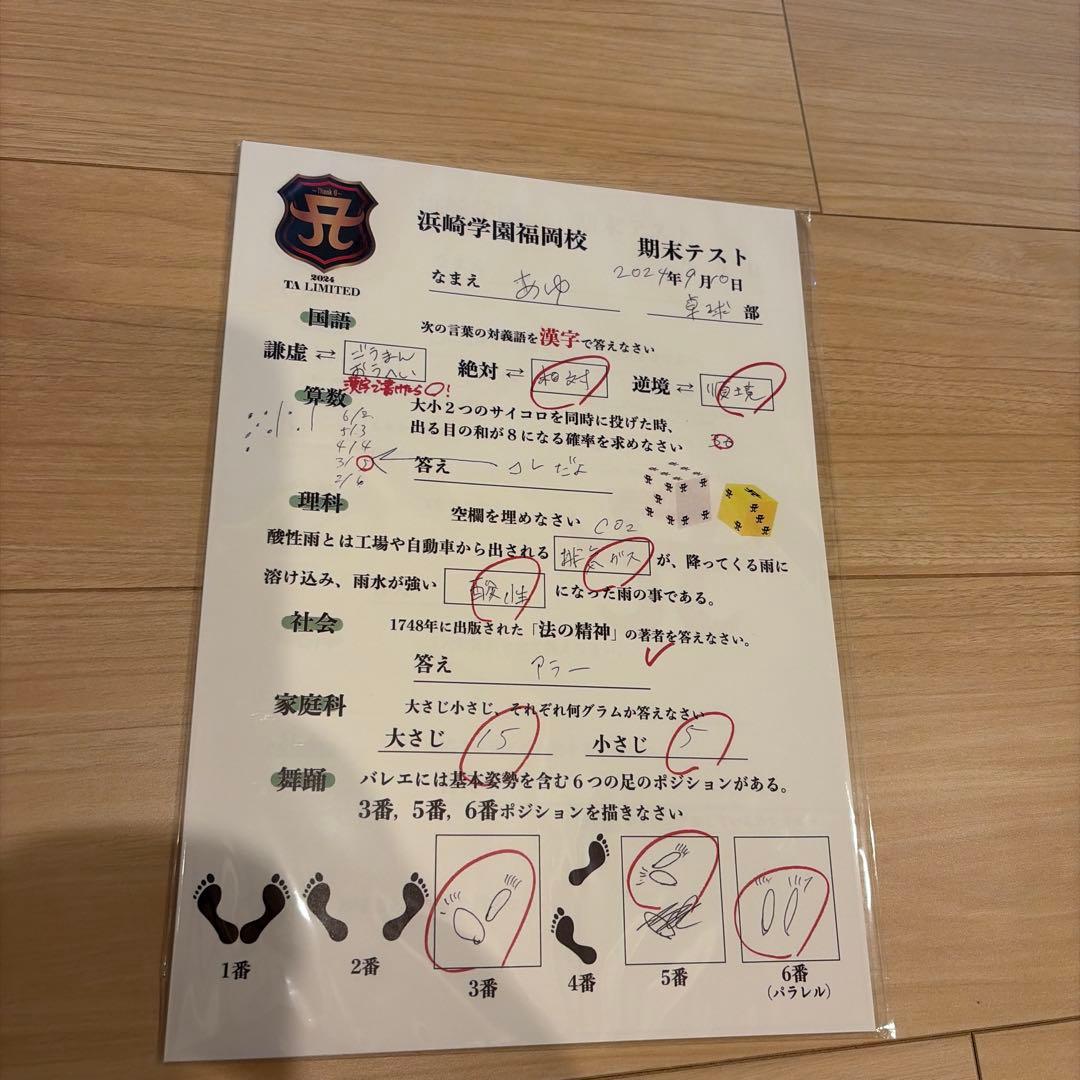 ~Thank U~
A
2024
TA LIMITED
浜崎学園福岡校 期末テスト
なまえ あゆ 2024年9月10日
卓球部
国語 次の言葉の対義語を漢字で答えなさい
謙虚 ⇄ ごうまん おうへい 絶対 ⇄ 相対 逆境 ⇄ 順境
漢字で書けたら○!
算数 大小2つのサイコロを同時に投げた時、
出る目の和が8になる確率を求めなさい
6/2
5/3
4/4
3/5
2/6
答え コレだよ
理科 空欄を埋めなさい CO2
酸性雨とは工場や自動車から出される 排気ガス が、降ってくる雨に
溶け込み、雨水が強い 酸性 になった雨の事である。
社会 1748年に出版された「法の精神」の著者を答えなさい。
答え アラー
家庭科 大さじ小さじ、それぞれ何グラムか答えなさい
大さじ 15 小さじ 5
舞踊 バレエには基本姿勢を含む6つの足のポジションがある。
3番, 5番, 6番ポジションを描きなさい
1番 2番 3番 4番 5番 6番
(パラレル)